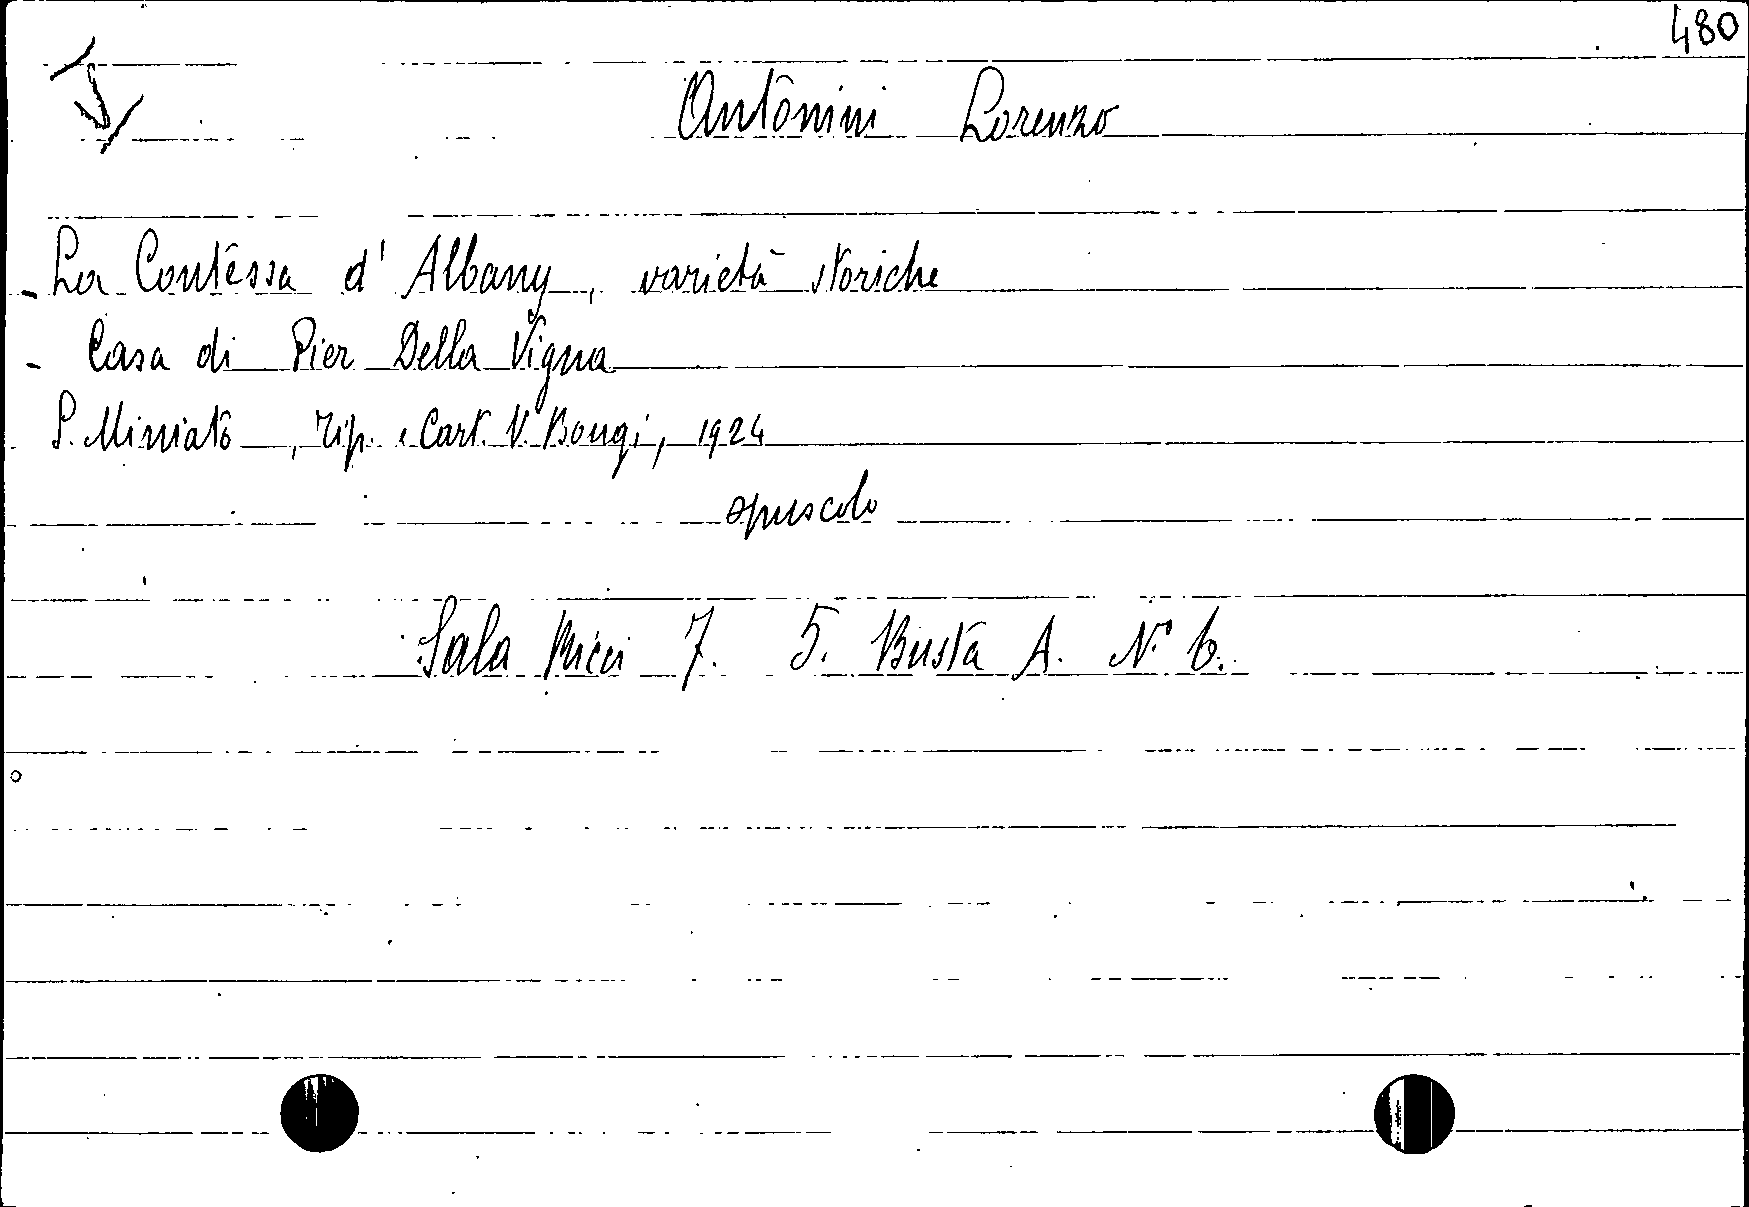 480
Antonini Lorenzo
- La Contessa d'Albany, varietà storiche
- Casa di Pier Della Vigna
S. Miniato, Tip. e Cart. V. Bongi, 1924
opuscolo
Sala Ricci 7. 5. Busta A. N° 6.